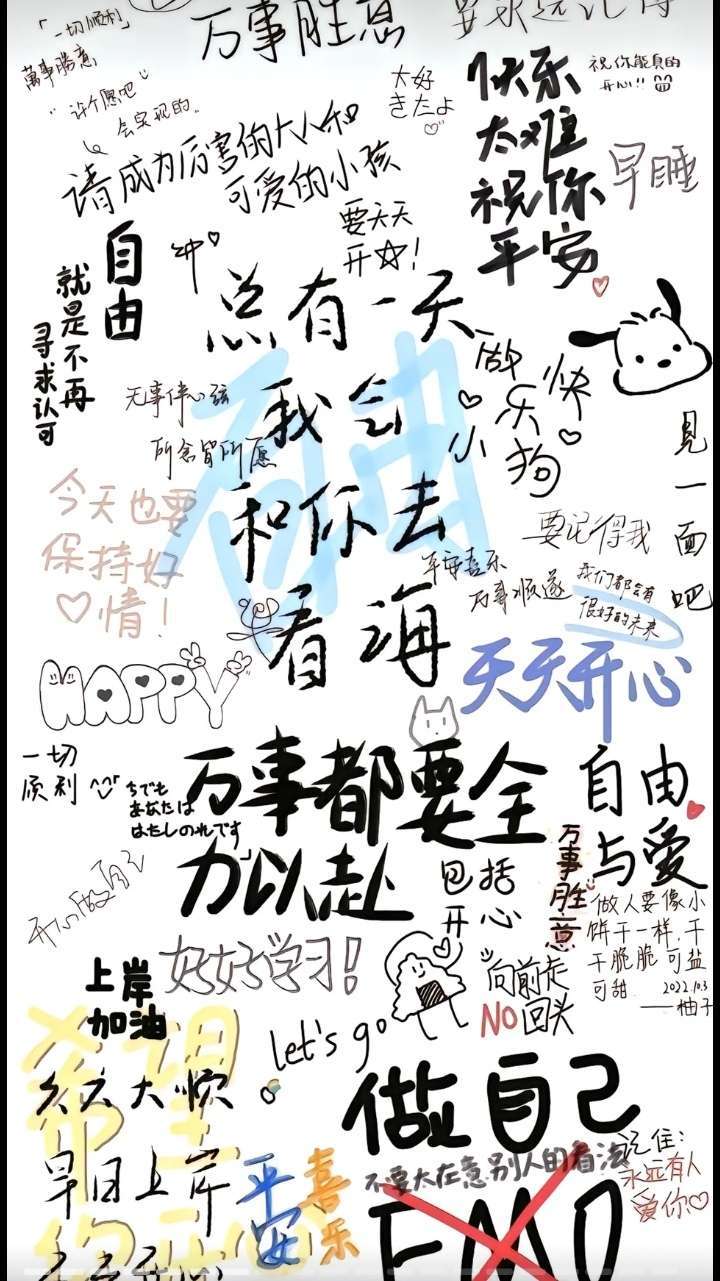 「一切顺利」
萬事勝意
万事胜意
"许个愿吧"
会实现的.
大好
きたよ
快乐
太难
祝你
平安
祝你能真的
开心!!
早睡
请成为厉害的大人和
可爱的小孩
要天天
开☆!
自由
就是不再
寻求认可
冲
总有一天
我会
和你去
看海
自由
做
快
乐
小
狗
见一面吧
无事伴心弦
所念皆所愿
今天也要
保持好
情!
要记得我
平安喜乐
万事顺遂
我们都会有
很好的未来
天天开心
HAPPY
一切
顺利
万事都要全
力以赴
包括
开心
自由
与爱
万事胜意
做人要像小
饼干一样,干
干脆脆 可盐
可甜 2022.10.3
——柚子
好好学习!
上岸
加油
向前走
NO回头
let's go
希望
天天大顺
早日上岸
平安
喜乐
做自己
不要太在意别人的看法
EMO
记住:
永远有人
爱你